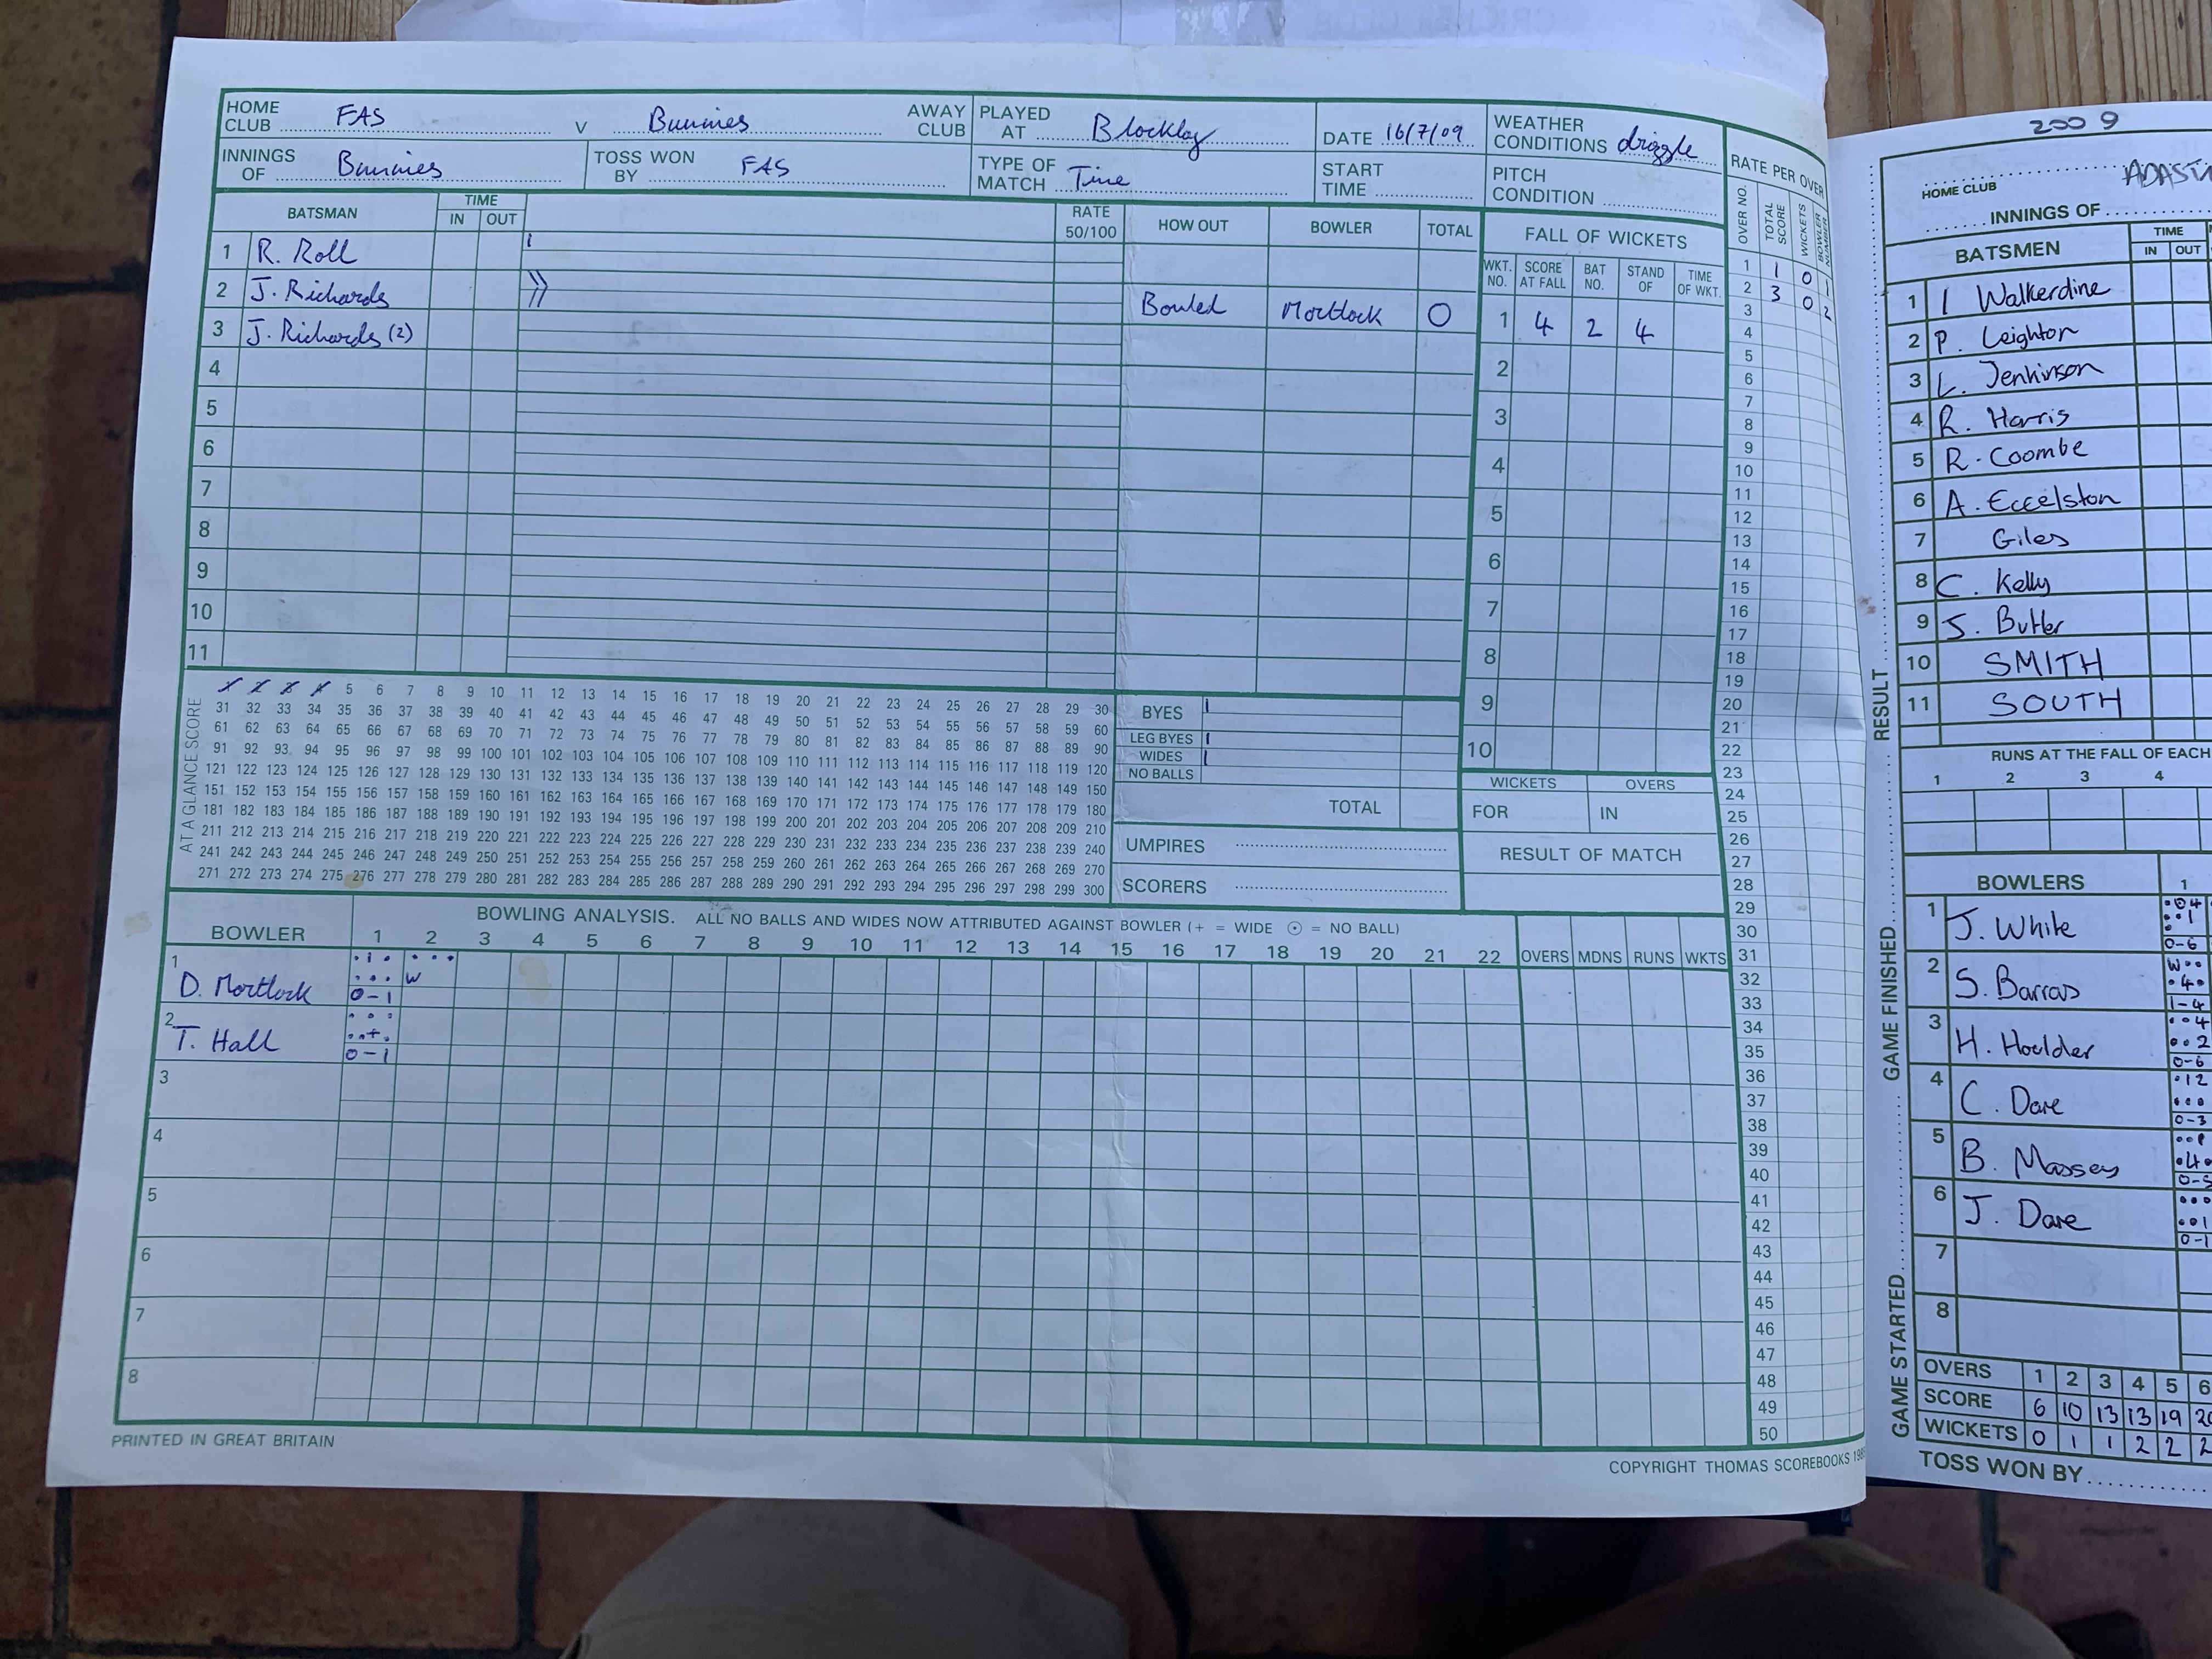 HOME CLUB FAS V Bunnies AWAY CLUB PLAYED AT Blockley DATE 16/7/09 WEATHER CONDITIONS drizzle
INNINGS OF Bunnies TOSS WON BY FAS TYPE OF MATCH Time START TIME PITCH CONDITION
RATE PER OVER
OVER NO. TOTAL SCORE WICKETS BOWLER NUMBER
BATSMAN TIME IN OUT RATE 50/100 HOW OUT BOWLER TOTAL
FALL OF WICKETS
WKT. NO. SCORE AT FALL BAT NO. STAND OF TIME OF WKT.
1 R. Roll 1
2 J. Richards Bowled Mortlock 0
3 J. Richards (2)
4
5
6
7
8
9
10
11
1 4 2 4
2
3
4
5
6
7
8
9
10
1 1 0 1
2 3 0 2
3
4
5
6
7
8
9
10
11
12
13
14
15
16
17
18
19
20
21
22
23
24
25
26
27
28
29
30
31
32
33
34
35
36
37
38
39
40
41
42
43
44
45
46
47
48
49
50
AT A GLANCE SCORE
1 2 3 4 5 6 7 8 9 10 11 12 13 14 15 16 17 18 19 20 21 22 23 24 25 26 27 28 29 30
31 32 33 34 35 36 37 38 39 40 41 42 43 44 45 46 47 48 49 50 51 52 53 54 55 56 57 58 59 60
61 62 63 64 65 66 67 68 69 70 71 72 73 74 75 76 77 78 79 80 81 82 83 84 85 86 87 88 89 90
91 92 93 94 95 96 97 98 99 100 101 102 103 104 105 106 107 108 109 110 111 112 113 114 115 116 117 118 119 120
121 122 123 124 125 126 127 128 129 130 131 132 133 134 135 136 137 138 139 140 141 142 143 144 145 146 147 148 149 150
151 152 153 154 155 156 157 158 159 160 161 162 163 164 165 166 167 168 169 170 171 172 173 174 175 176 177 178 179 180
181 182 183 184 185 186 187 188 189 190 191 192 193 194 195 196 197 198 199 200 201 202 203 204 205 206 207 208 209 210
211 212 213 214 215 216 217 218 219 220 221 222 223 224 225 226 227 228 229 230 231 232 233 234 235 236 237 238 239 240
241 242 243 244 245 246 247 248 249 250 251 252 253 254 255 256 257 258 259 260 261 262 263 264 265 266 267 268 269 270
271 272 273 274 275 276 277 278 279 280 281 282 283 284 285 286 287 288 289 290 291 292 293 294 295 296 297 298 299 300
BYES 1
LEG BYES 1
WIDES 1
NO BALLS
TOTAL
UMPIRES
SCORERS
WICKETS OVERS
FOR IN
RESULT OF MATCH
BOWLER
BOWLING ANALYSIS. ALL NO BALLS AND WIDES NOW ATTRIBUTED AGAINST BOWLER (+ = WIDE ⊙ = NO BALL)
1 2 3 4 5 6 7 8 9 10 11 12 13 14 15 16 17 18 19 20 21 22 OVERS MDNS RUNS WKTS
1 D. Mortlock . 1 . . . . 0-1 . . . W
2 T. Hall . . . . . + . 0-1
3
4
5
6
7
8
PRINTED IN GREAT BRITAIN
COPYRIGHT THOMAS SCOREBOOKS
2009
HOME CLUB
INNINGS OF
BATSMEN TIME IN OUT
1 I Walkerdine
2 P. Leighton
3 L. Jenkinson
4 R. Harris
5 R. Coombe
6 A. Eccelston
7 Giles
8 C. Kelly
9 S. Butler
10 SMITH
11 SOUTH
RUNS AT THE FALL OF EACH
1 2 3 4
BOWLERS 1
1 J. White .04 ..1 . 0-6
2 S. Barras W.. .4. 1-4
3 H. Houlder ..4 ..2 0-6
4 C. Dare .12 ... 0-3
5 B. Massey
6 J. Dare ... ..1 0-1
7
8
OVERS 1 2 3 4 5 6
SCORE 6 10 13 13 19
WICKETS 0 1 1 2 2 2
TOSS WON BY
GAME STARTED
GAME FINISHED
RESULT